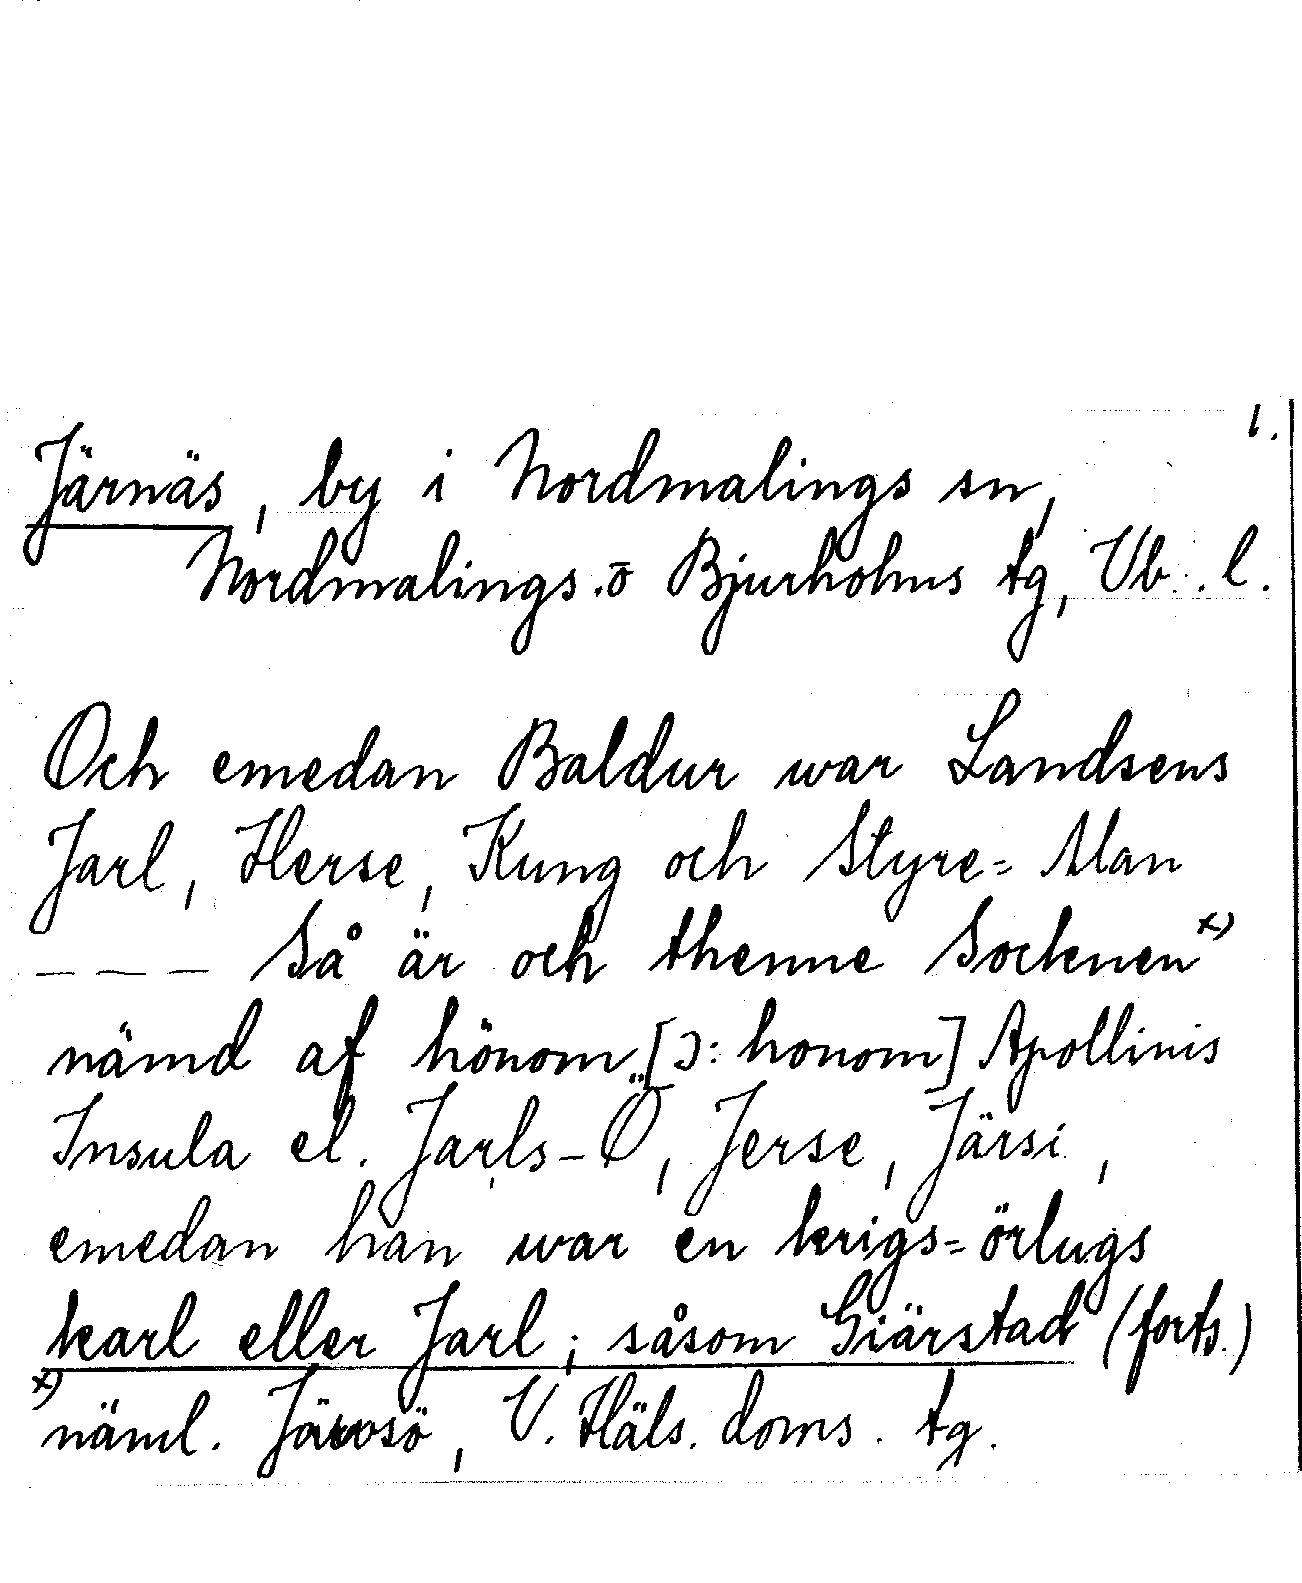 1.
Järnäs, by i Nordmalings sn,
Nordmalings o Bjurholms tg, Vb. l.
Och emedan Baldur war Landsens
Jarl, Herse, Kung och Styre= Man
_ _ _ Så är och thenne Socknen x)
nämd af hönom [ɔ: honom] Apollinis
Insula el. Jarls-Ö, Jerse, Järsi,
emedan han war en krigs=örlugs
karl eller Jarl; såsom Giärstad (forts.)
x) näml. Järvsö, V. Häls. doms. tg.